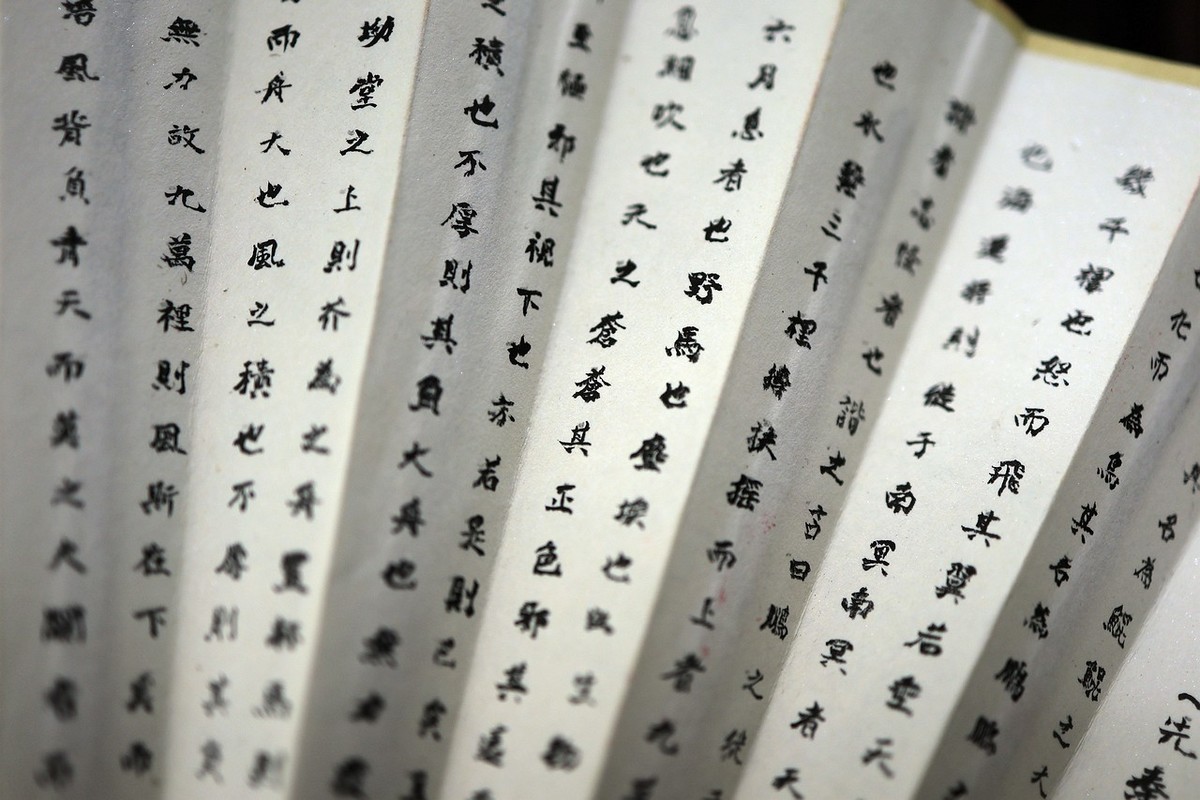 先秦
名為鯤鯤之大
化而為鳥其名為鵬鵬
幾千裡也怒而飛其翼若垂天
也海運將則徙于南冥南冥者天
諧者志怪者也諧之言曰鵬之徙
也水擊三千裡摶扶搖而上者九萬
六月息者也野馬也塵埃也生物
息相吹也天之蒼蒼其正色邪其遠
至極邪其視下也亦若是則已矣且
之積也不厚則其負大舟也無力
坳堂之上則芥為之舟置杯焉則
而舟大也風之積也不厚則其負
無力故九萬裡則風斯在下矣而
培風背負青天而莫之夭閼者而